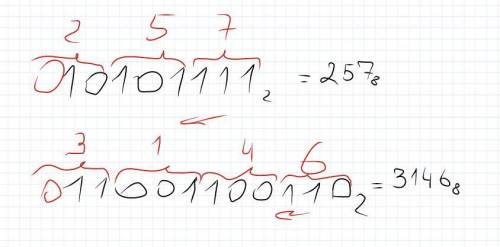 2 5 7
010101111₂ = 257₈
3 1 4 6
011001100110₂ = 3146₈